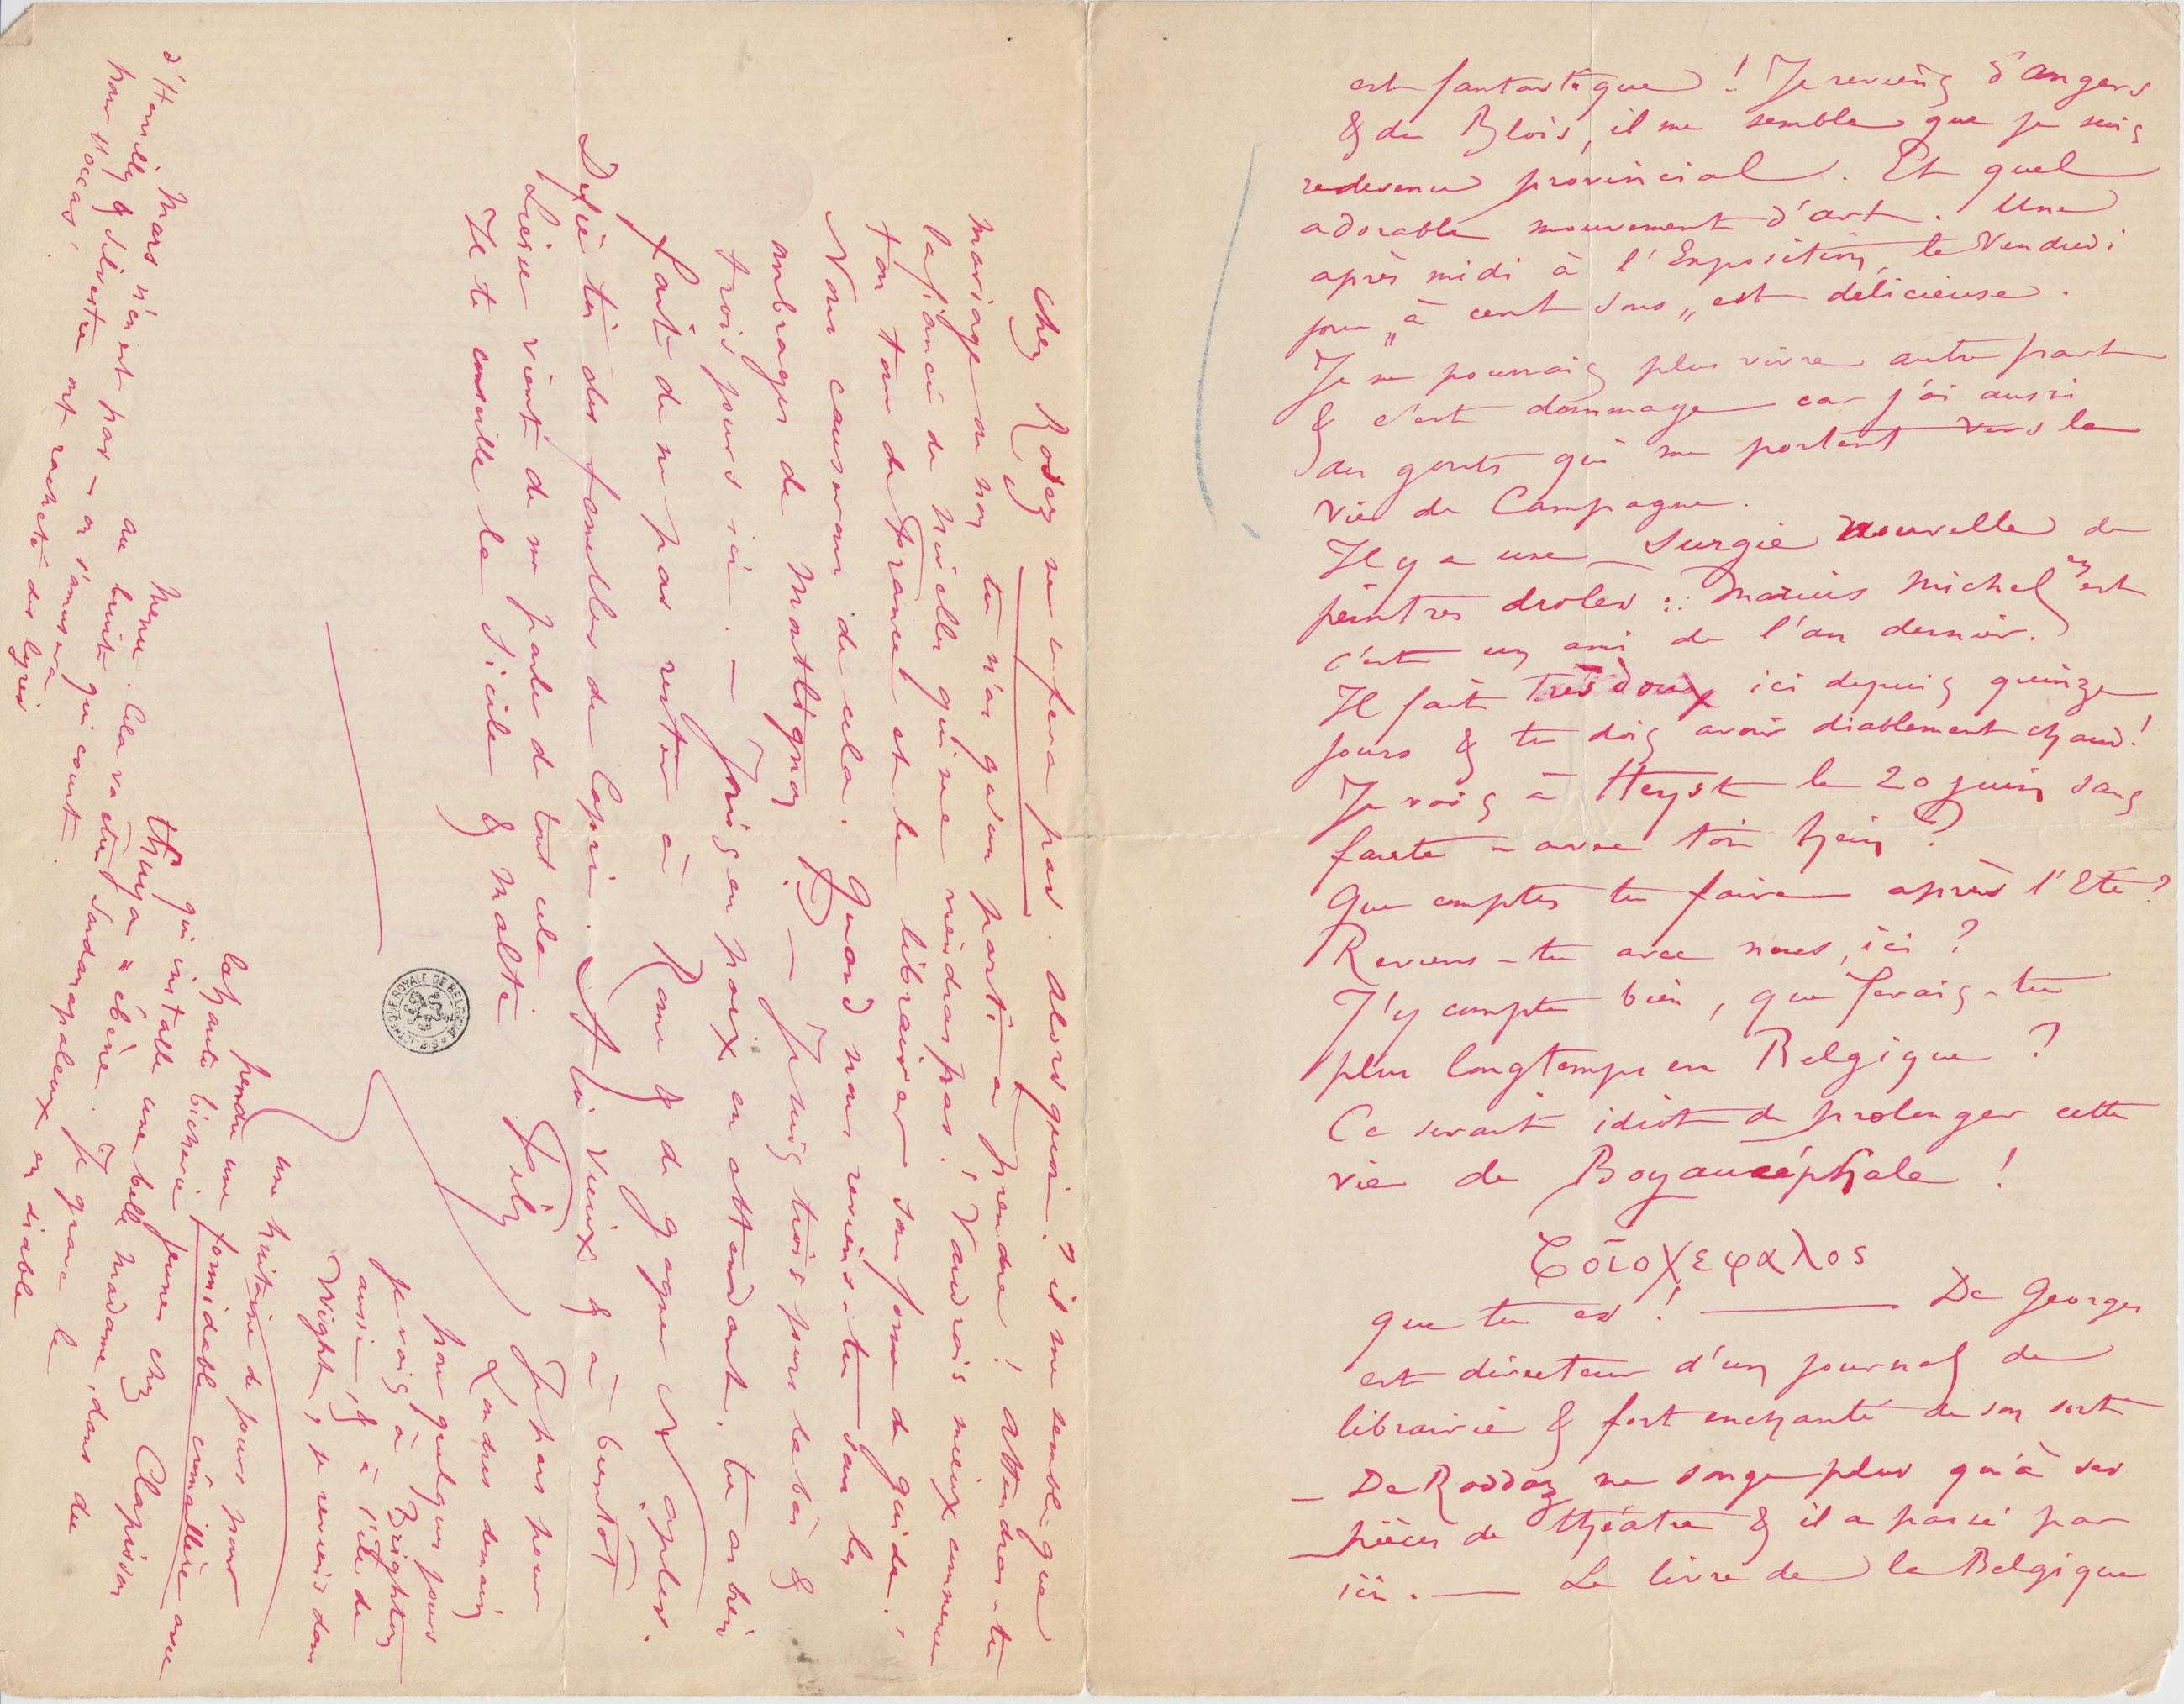 est fantastique ! Je reviens d'Angers
& de Blois, il me semble que je suis
redevenu provincial. Et quel
adorable mouvement d'art. Une
après midi à l'Exposition, le Vendredi
jour „à cent sous„ est délicieuse.
Je ne pourrais plus vivre autre part
& c'est dommage car j'ai aussi
des gouts qui me portent vers la
vie de Campagne.
Il y a une surgie nouvelle de
peintres droles : Marius Michel en est
c'est un ami de l'an dernier.
Il fait très doux ici depuis quinze
jours & tu dois avoir diablement chaud !
Je vais à Heyst le 20 juin sans
faute - avec toi hein ?
Que comptes tu faire après l'Eté ?
Reviens-tu avec nous, ici ?
J'y compte bien, que ferais-tu
plus longtemps en Belgique ?
Ce serait idiot de prolonger cette
vie de Boyaucéphale !
que tu es ! — De Georges
est directeur d'un journal de
librairie & fort enchanté de son sort
— De Roddaz ne songe plus qu'à ses
pièces de théatre & il a passé par
ici. — Le livre de la Belgique
chez Rozez ne se fera pas. Alors quoi ? il me semble que
mariage ou non tu n'as qu'un parti à prendre ! Attendras-tu
la fiancée de Nivelles qui ne viendra pas ! Vaudrais mieux commencer
ton tour de France et le librairer sous forme de guide.
Nous causerons de cela. Quand nous reviens-tu sous les
ombrages de Montlignon ? — Je suis trois jours la bas &
trois jours ici. — Jouis en paix en attendant, tu as bien
fait de ne pas rester à Rome & de gagner Naples.
Défie toi des femelles de Capri. A toi vieux & à bientôt
Liesse vient de me parler de tout cela
Je te conseille la Sicile & Malte
Fély
Je pars pour
Londres demain
pour quelques jours
je vais à Brighton
aussi, & à l'ile de
Wight, je reviens dans
une huitaine de jours pour
pendre une formidable crémaillère avec
la haute bicherie jeune chez Clapisson
qui installe une belle Madame, dans du
thuya & ébène. Je grave le
menu. Cela va être Sardanapalesque en diable
au bruit qui court.
Mars n'en est pas - on s'amusera
d'Hervilly & Silvestre ont racheté des lyres
pour l'occas.
BIBLIOTHEQUE ROYALE DE BELGIQUE